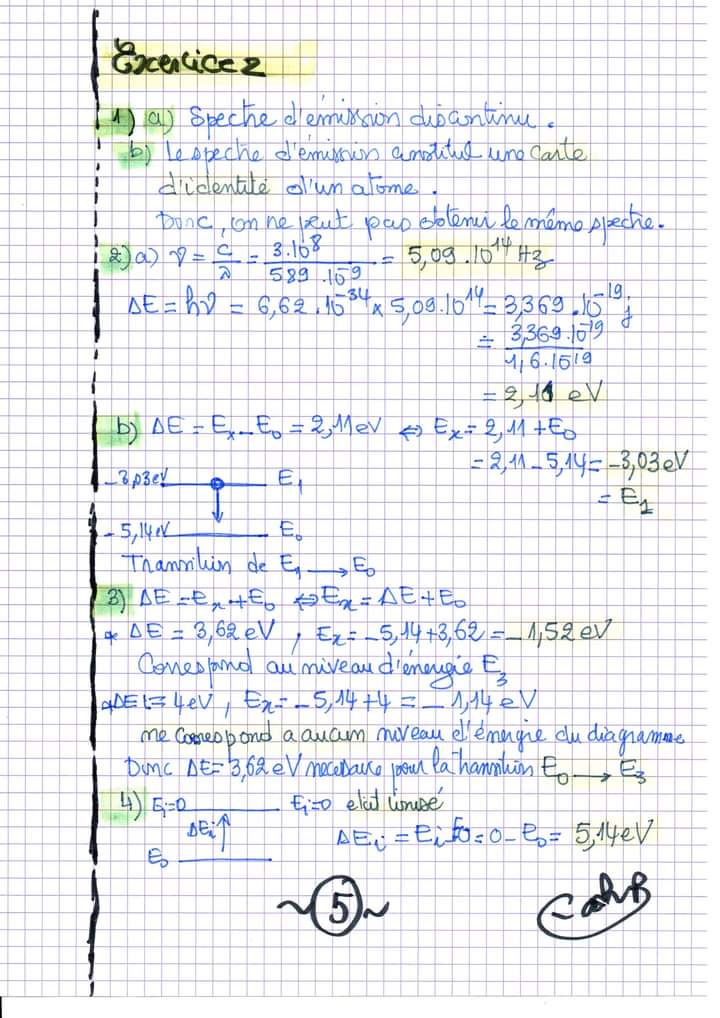 Exercice 2
1) a) Spectre d'émission discontinu.
b) Le spectre d'émission constitue une carte
d'identité d'un atome.
Donc, on ne peut pas obtenir le même spectre.
2) a) ν = c/λ = 3.10^8 / 589.10^-9 = 5,09.10^14 Hz
ΔE = hν = 6,62.10^-34 × 5,09.10^14 = 3,369.10^-19 j
= 3,369.10^-19 / 1,6.10^-19
= 2,11 eV
b) ΔE = Ex - E0 = 2,11 eV ⇔ Ex = 2,11 + E0
= 2,11 - 5,14 = -3,03 eV
= E1
-3,03 eV E1
-5,14 eV E0
Transition de E1 → E0
3) ΔE = Ex + E0 ⇔ Ex = ΔE + E0
* ΔE = 3,62 eV, Ex = -5,14 + 3,62 = -1,52 eV
Correspond au niveau d'énergie E3
* ΔE' = 4 eV, Ex = -5,14 + 4 = -1,14 eV
ne correspond a aucun niveau d'énergie du diagramme
Donc ΔE = 3,62 eV necessaire pour la transition E0 → E3
4) Ei=0 Ei=0 etat ionisé
ΔEi ↑ ΔEi = Ei - E0 = 0 - E0 = 5,14 eV
E0
~ 5 ~